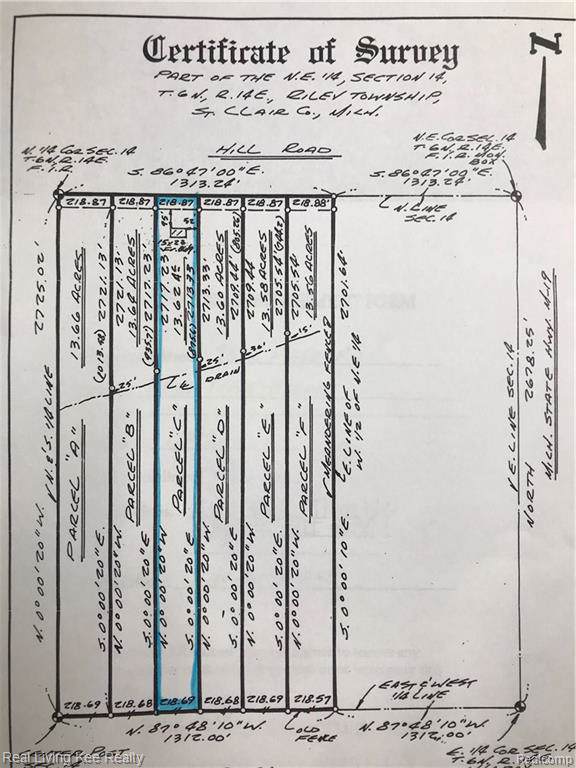 Certificate of Survey
PART OF THE N.E. 1/4, SECTION 14,
T.6N., R.14E., RILEY TOWNSHIP,
ST. CLAIR CO., MICH.
N
HILL ROAD
N. 1/4 COR. SEC. 14
T.6N., R.14E.
F.I.R.
S. 86°47'00"E.
1313.24'
N.E. COR. SEC. 14
T.6N., R.14E.,
F.I.R. MON.
BOX
S. 86°47'00"E.
1313.24'
N. LINE
SEC. 14
218.87
218.87
218.87
218.87
218.87
218.88'
95'
52
N. & S. 1/4 LINE
2725.02'
13.66 ACRES
2721.13'
2721.13'
13.64 ACRES
2717.23'
2717.23'
13.62 AC
2713.33
2713.33
13.60 ACRES
2709.44'
2709.44
13.58 ACRES
2705.54'
2705.54'
13.56 ACRES
2701.64'
25'
℄ DRAIN
25'
30'
15'
PARCEL "A"
PARCEL "B"
PARCEL "C"
PARCEL "D"
PARCEL "E"
PARCEL "F"
MEANDERING FENCE
E. LINE OF
W. 1/2 OF N.E. 1/4
N. 0°00'20"W.
S. 0°00'20"E.
N. 0°00'20"W.
S. 0°00'20"E
N. 0°00'20"W
S. 0°00'20"E.
N. 0°00'20"W.
S. 0°00'20"E
N. 0°00'20"W
S. 0°00'20"E.
N. 0°00'20"W.
S. 0°00'10"E.
E. LINE SEC. 14
NORTH 2678.25'
MICH. STATE HWY M-19
218.69
218.68
218.69
218.68
218.69
218.57
N. 87°48'10"W.
1312.00'
OLD
FENCE
EAST & WEST
1/4 LINE
N. 87°48'10"W.
1312.00'
CENTER POST
E. 1/4 COR. SEC. 14
T.6N., R.14E.
Real Living Kee Realty
Realcomp